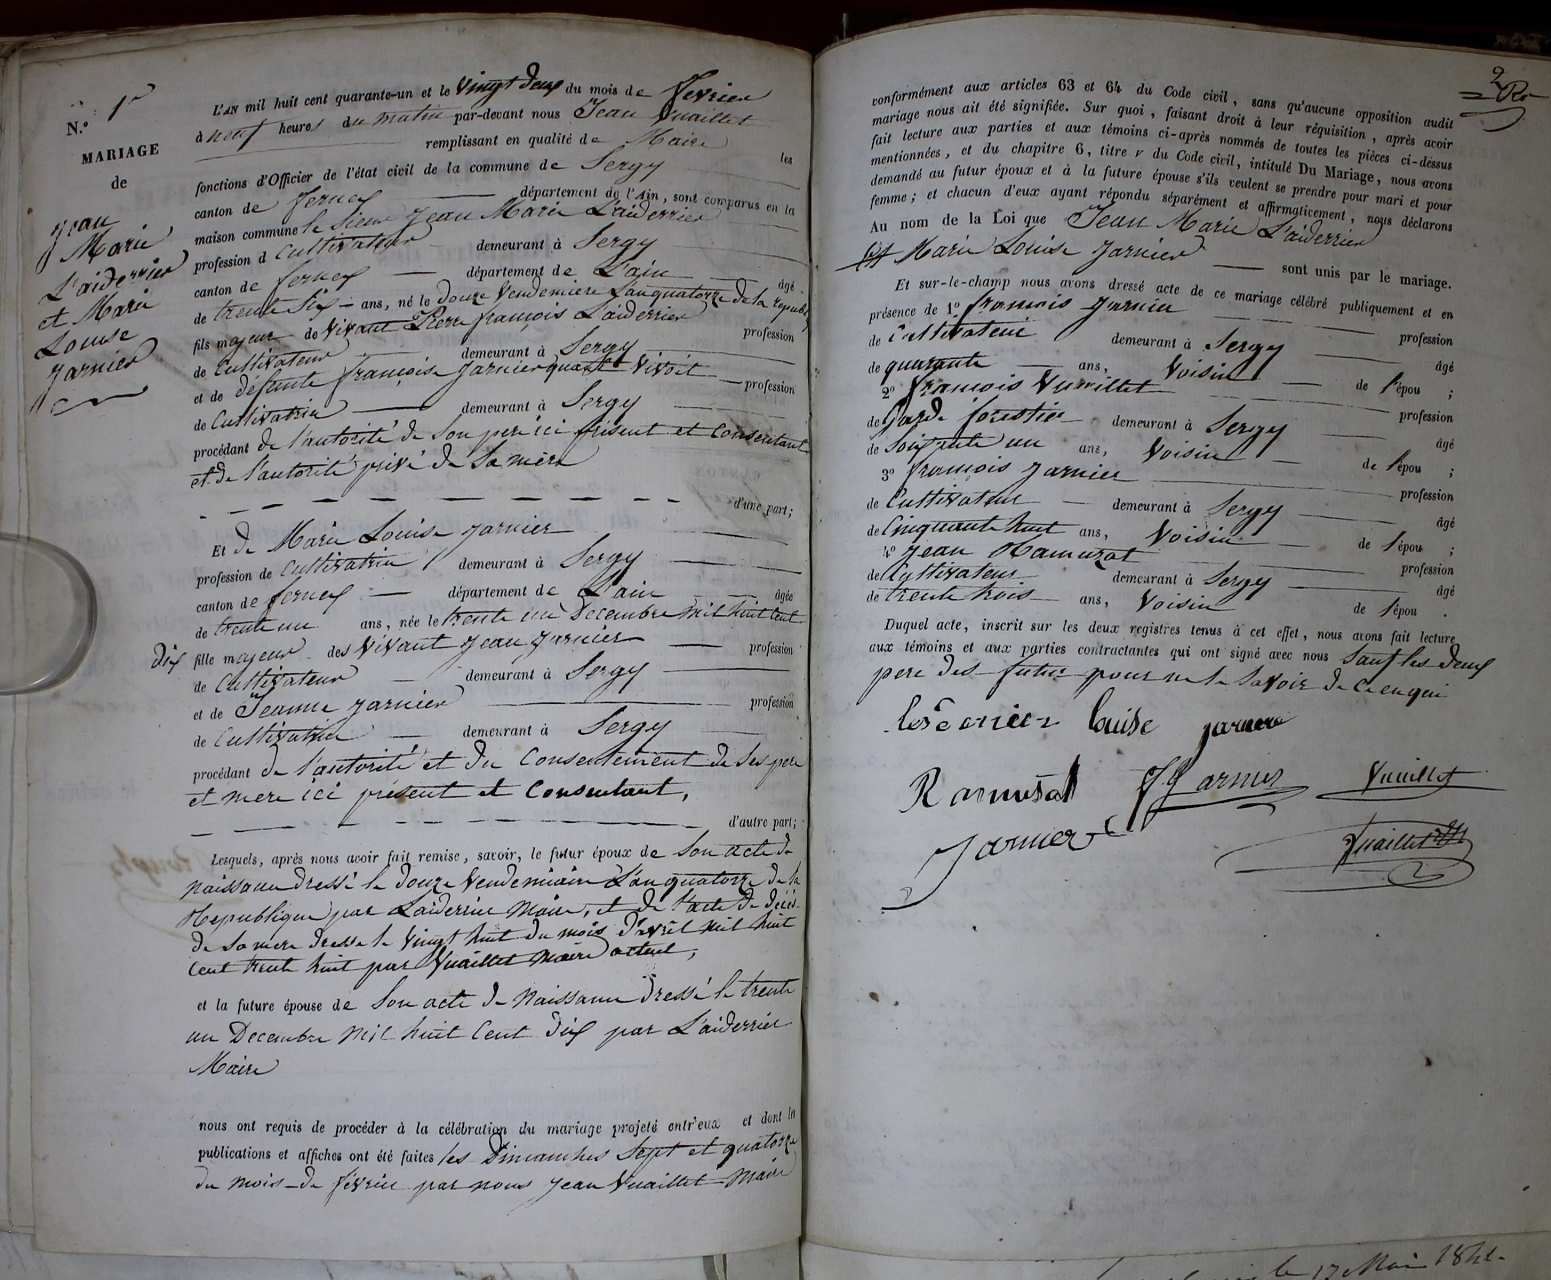 N.° 1er
MARIAGE
de
Jean
Marie
L'aiderrier
et Marie
Louise
Jarnier
L'AN mil huit cent quarante-un et le vingt deux du mois de Fevrier
à neuf heures du matin par-devant nous Jean Vuaillet
remplissant en qualité de Maire les
fonctions d'Officier de l'état civil de la commune de Sergy
canton de ferney département de l'Ain, sont comparus en la
maison commune le sieur Jean Marie L'aiderrier
profession d cultivateur demeurant à Sergy
canton de ferney département de L'ain âgé
de trente six ans, né le douze Vendemiere L'an quatorze de la republ
fils majeur de vivant Pierre françois Laiderrier profession
de Cultivateur demeurant à Sergy
et de defunte françoise Jarnier quant vivoit profession
de Cultivatrice demeurant à Sergy
procédant de l'autorité de son pere ici present et consentant
et de l'autorité privé de sa mère
d'une part;
Et de Marie Louise Jarnier
profession de cultivatrice demeurant à Sergy
canton de ferney département de L'ain âgée
de trente un ans, née le trente un Decembre mil huit cent
dix fille majeur des vivant Jean Jarnier profession
de Cultivateur demeurant à Sergy
et de Jeanne Jarnier profession
de Cultivatrice demeurant à Sergy
procédant de l'autorité et du Consentement de ses pere
et mere ici présent et Consentant,
d'autre part;
Lesquels, après nous avoir fait remise, savoir, le futur époux de son acte de
naissance dressé le douze Vendemiaire L'an quatorze de la
Republique par Laiderrier Maire, et de l'acte de décès
de sa mere dressé le vingt huit du mois d'avril mil huit
cent trente huit par Vuaillet maire acteul,
et la future épouse de son acte de naissance dressé le trente
un Decembre mil huit Cent dix par L'aiderrier
Maire
nous ont requis de procéder à la célébration du mariage projeté entr'eux et dont les
publications et affiches ont été faites les Dimanches sept et quatorze
du mois de février par nous Jean Vuaillet Maire
2
conformément aux articles 63 et 64 du Code civil, sans qu'aucune opposition audit
mariage nous ait été signifiée. Sur quoi, faisant droit à leur réquisition, après avoir
fait lecture aux parties et aux témoins ci-après nommés de toutes les pièces ci-dessus
mentionnées, et du chapitre 6, titre v du Code civil, intitulé Du Mariage, nous avons
demandé au futur époux et à la future épouse s'ils veulent se prendre pour mari et pour
femme; et chacun d'eux ayant répondu séparément et affirmaticement, nous déclarons
Au nom de la Loi que Jean Marie L'aiderrier
et Marie Louise Jarnier sont unis par le mariage.
Et sur-le-champ nous avons dressé acte de ce mariage célébré publiquement et en
présence de 1° françois Jarnier profession
de Cultivateur demeurant à Sergy âgé
de quarante ans, Voisin de l'épou ;
2° françois Vuaillet profession
de Garde forestier demeurant à Sergy âgé
de soixante un ans, Voisin de l'épou ;
3° françois Jarnier profession
de Cultivateur demeurant à Sergy âgé
de Cinquante huit ans, Voisin de l'épou ;
4° Jean Ramuzat profession
de Cultivateur demeurant à Sergy âgé
de trente trois ans, Voisin de l'épou .
Duquel acte, inscrit sur les deux registres tenus à cet effet, nous avons fait lecture
aux témoins et aux parties contractantes qui ont signé avec nous sauf les deux
pere des futur pour ne le savoir de ce enquis
Louise Jarnier
Ramuzat F Jarnier Vuaillet
Jarnier Vuaillet
le 17 Mai 1841.